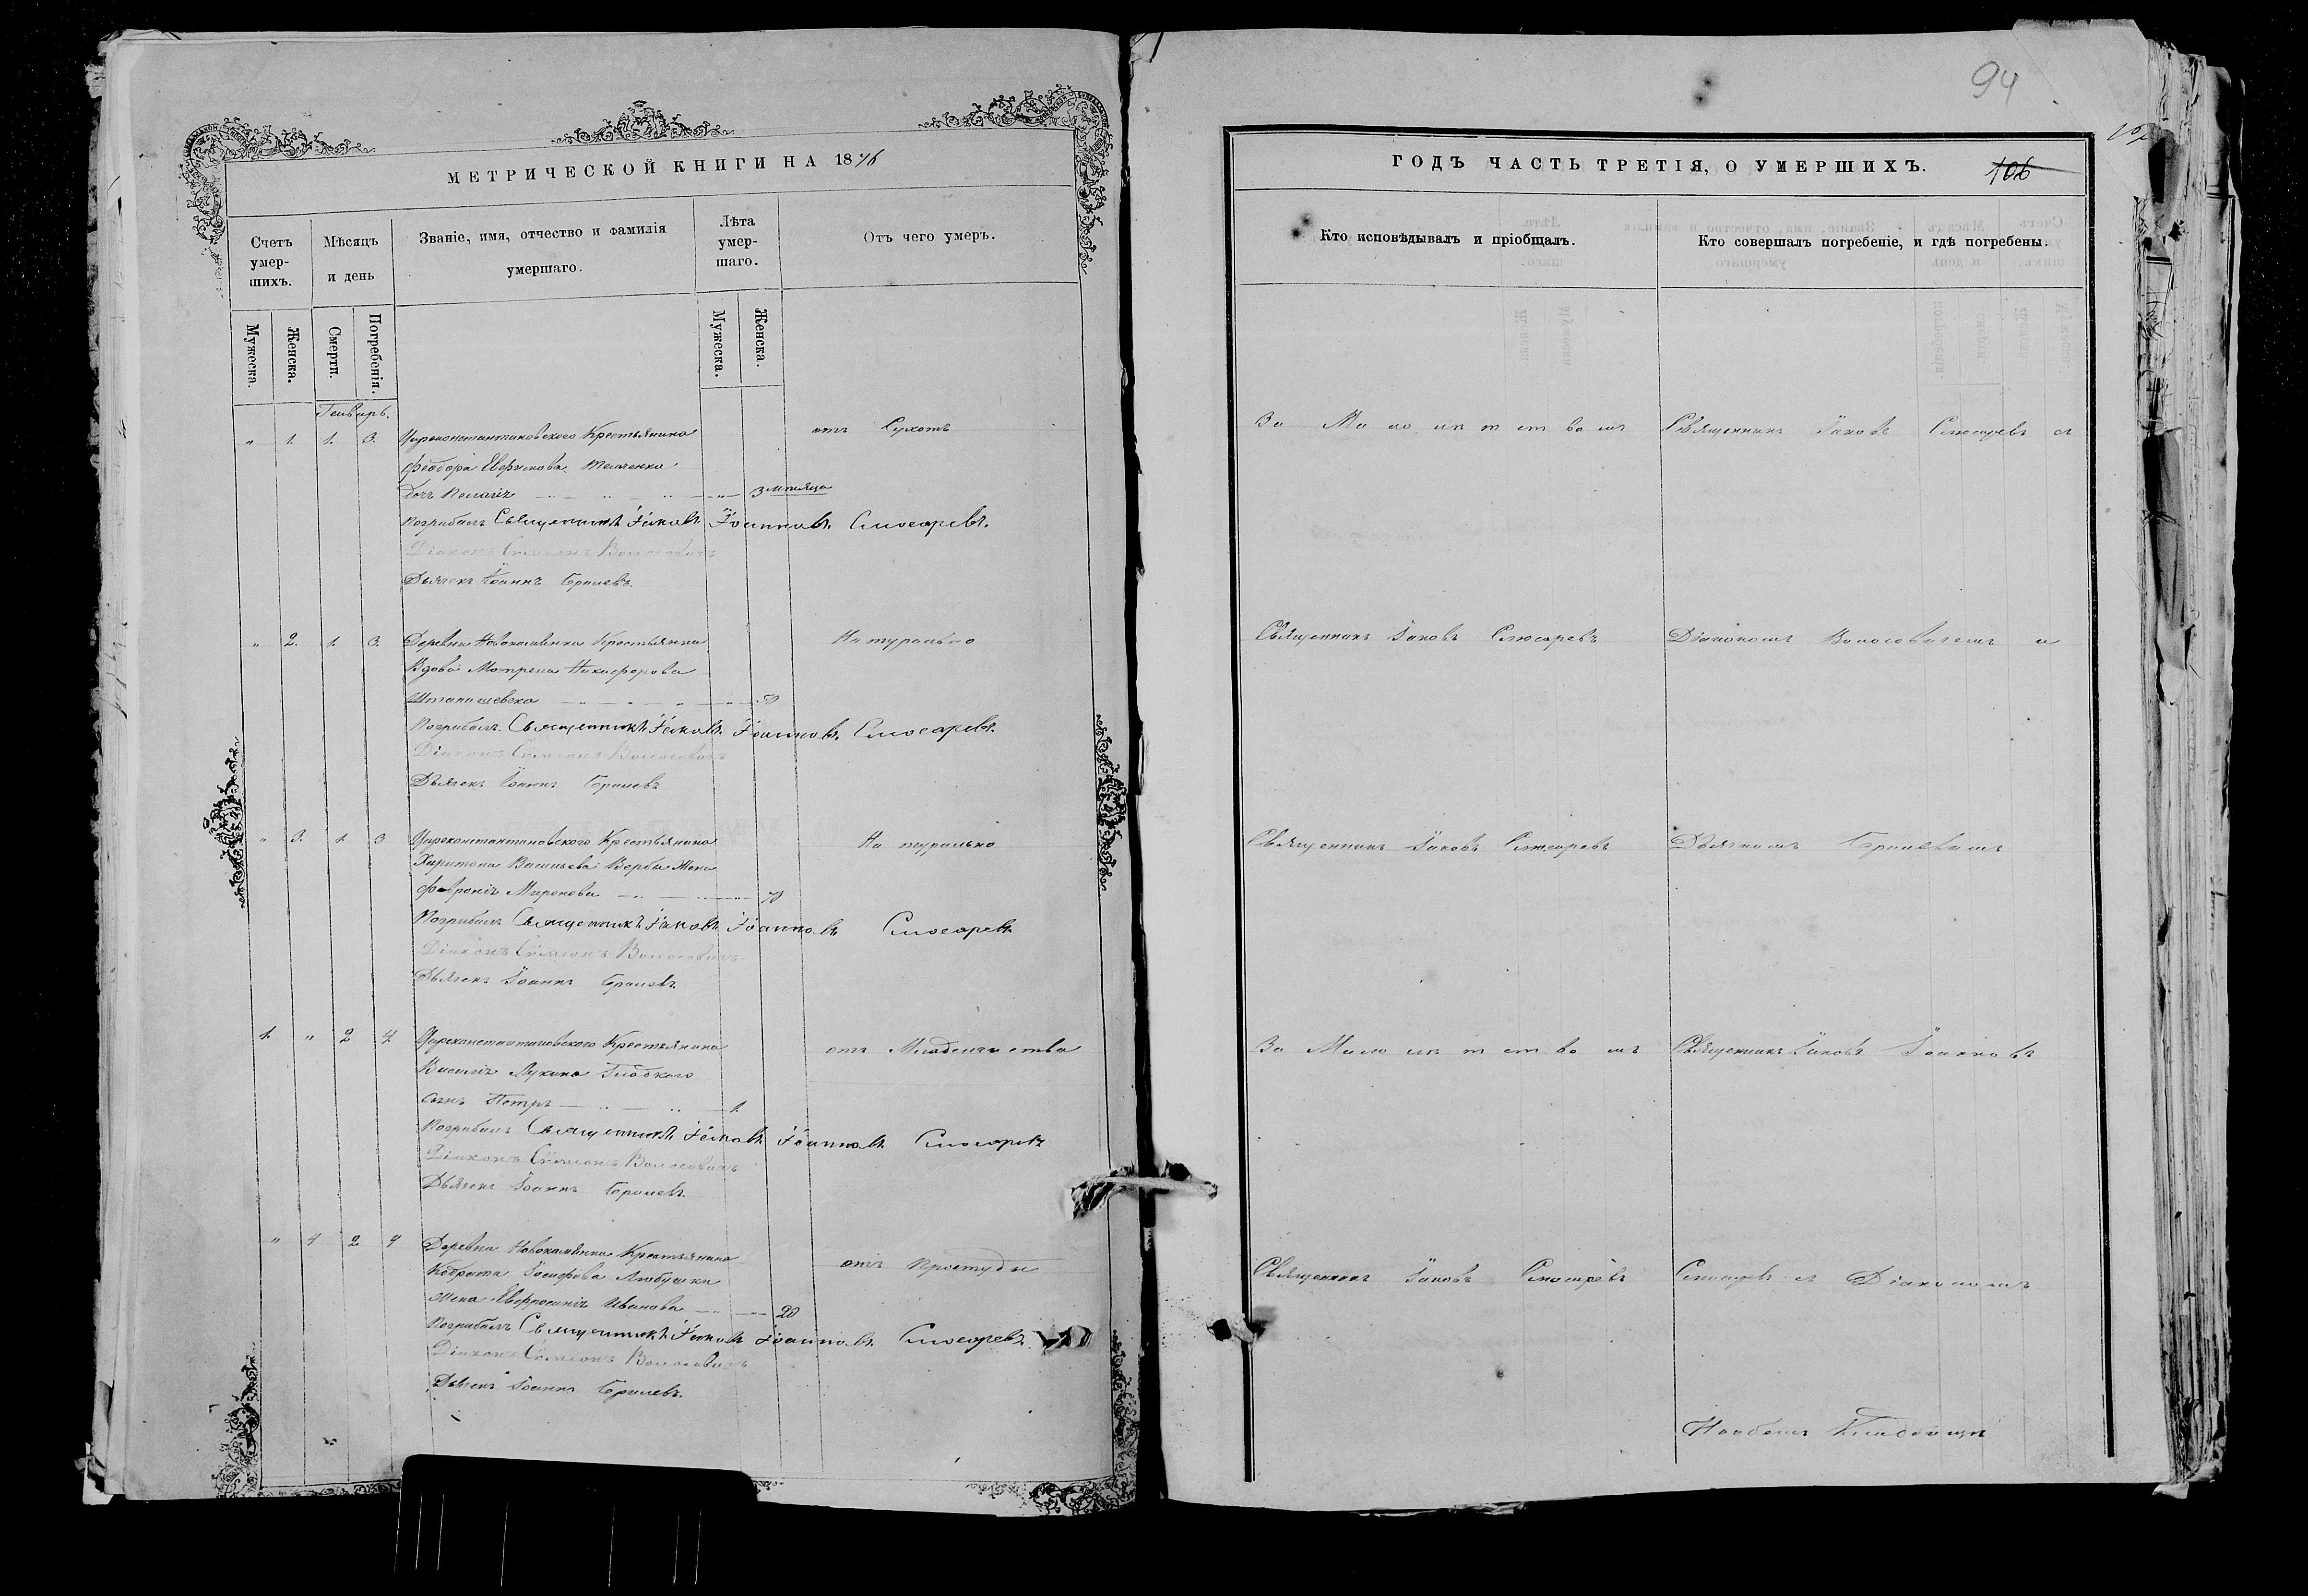 94
МЕТРИЧЕСКОЙ КНИГИ НА 1876
Счетъ умер-шихъ.
Мѣсяцъ и день
Званіе, имя, отчество и фамилія умершаго.
Лѣта умер-шаго.
Отъ чего умеръ.
Мужеска.
Женска.
Смерти.
Погребенія.
Мужеска.
Женска.
Генварь.
" 1. 1. 3. Цареконстантиновского Крестьянина отъ Сухотъ
Феодора
дочь Пелагія " 3 мѣсяца
Погребалъ Священникъ Іаковъ Іоанновъ Слюсаревъ.
Діаконъ Симеонъ Волосовичъ
Дьячекъ Іоаннъ
" 2. 1. 3. Деревни Новокаменки Крестьянка Натурально
Вдова Матрена Никифорова
Погребалъ Священникъ Іаковъ Іоанновъ Слюсаревъ.
Діаконъ Симеонъ Волосовичъ
Дьячекъ Іоаннъ
" 3. 1. 3 Цареконстантиновского Крестьянина Натурально
Харитона Васильева Вербы Жена
Февронія Миронова 70
Погребалъ Священникъ Іаковъ Іоанновъ Слюсаревъ
Діаконъ Симеонъ Волосовичъ
Дьячекъ Іоаннъ
1. " 2 4. Цареконстантиновского Крестьянина отъ Младенчества
Василія Лукина Гладкого
сынъ Петръ 1.
Погребалъ Священникъ Іаковъ Іоанновъ Слюсаревъ
Діаконъ Симеонъ Волосовичъ
Дьячекъ Іоаннъ
" 4 2 4 Деревни Новокаменки Крестьянина отъ Простуды
Кодрата Іосифова
жена Евфросинія Иванова 20
Погребалъ Священникъ Іаковъ Іоанновъ Слюсаревъ.
Діаконъ Симеонъ Волосовичъ
Дьячекъ Іоаннъ
ГОДЪ ЧАСТЬ ТРЕТІЯ, О УМЕРШИХЪ. 106
Кто исповѣдывалъ и пріобщалъ.
Кто совершалъ погребеніе, и гдѣ погребены.
За Малолѣтствомъ Священникъ Іаковъ Слюсаревъ съ
Священникъ Іаковъ Слюсаревъ Діакономъ Волосовичемъ и
Священникъ Іаковъ Слюсаревъ Дьячкомъ
За Малолѣтствомъ Священникъ Іаковъ Іоанновъ
Священникъ Іаковъ Слюсаревъ Слюсаревъ съ Діакономъ
На общемъ Кладбищѣ